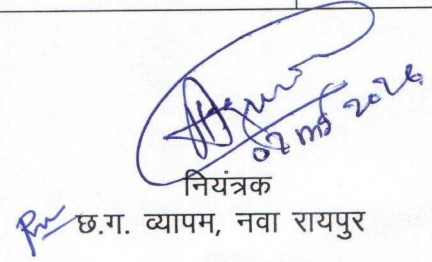 07 मई 2026
नियंत्रक
छ.ग. व्यापम, नवा रायपुर